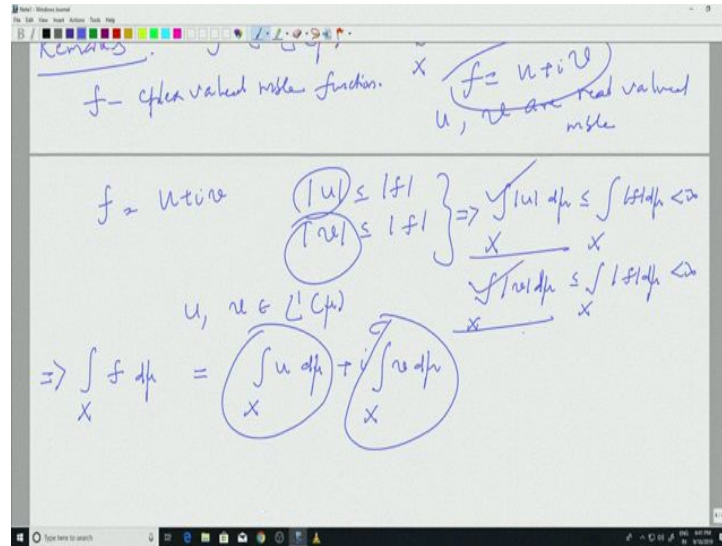 Note1 - Windows Journal
File Edit View Insert Actions Tools Help
Remarks :
f - cplex valued mble function.
X
f = u + i v
u, v are real valued
mble
f = u + i v
|u| ≤ |f|
|v| ≤ |f|
} => ∫_X |u| dμ ≤ ∫_X |f| dμ < ∞
∫_X |v| dμ ≤ ∫_X |f| dμ < ∞
u, v ∈ L¹(μ)
=> ∫_X f dμ = ∫_X u dμ + i ∫_X v dμ
Type here to search
9/16/2019